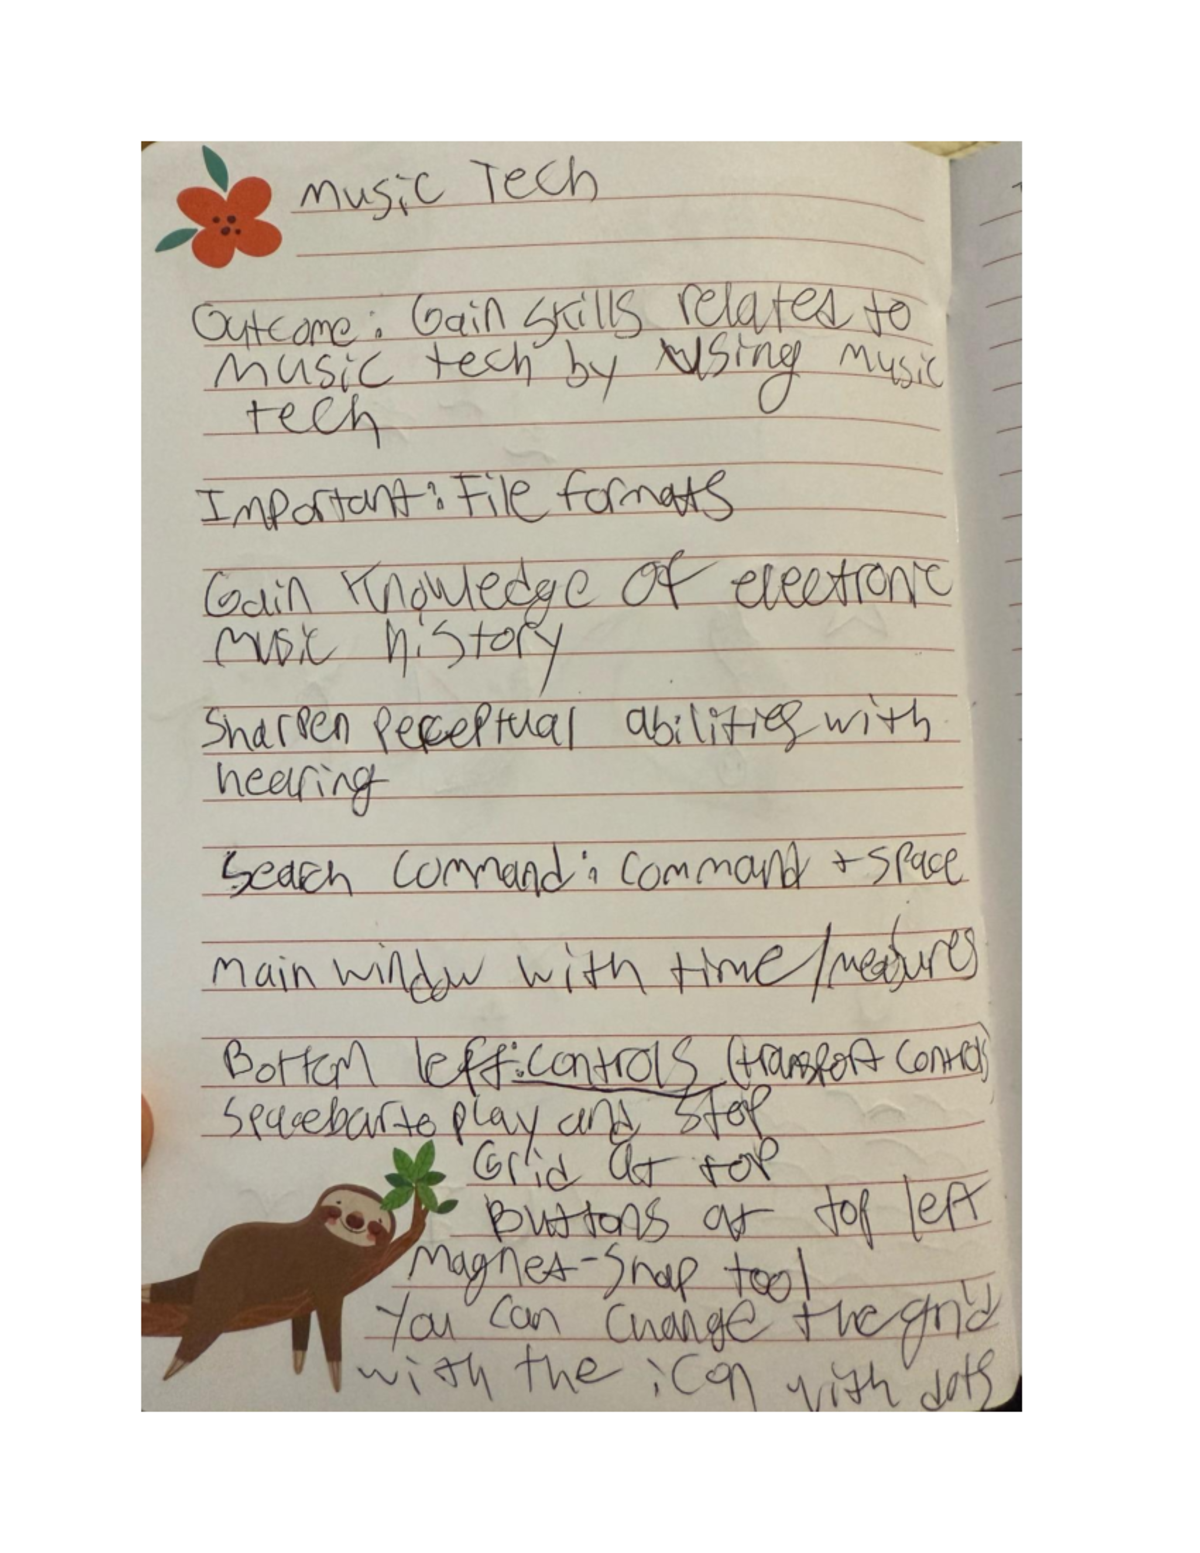 Music Tech
Outcome: Gain skills relates to
music tech by using music
tech
Important: File formats
Gain Knowledge of electronic
music history
Sharpen perceptual abilities with
hearing
Search command: Command + space
Main window with time/measures
Bottom left: controls (transport controls)
Spacebar to play and stop
Grid at top
Buttons at top left
Magnet-Snap tool
You can change the grid
with the icon with dots